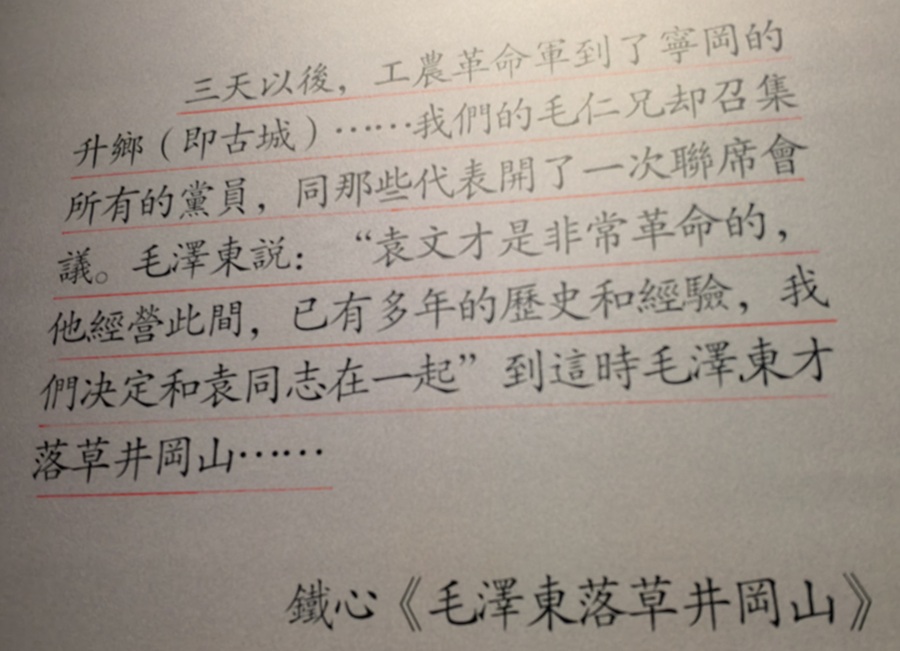 三天以後，工農革命軍到了寧岡的
升鄉（即古城）……我們的毛仁兄却召集
所有的黨員，同那些代表開了一次聯席會
議。毛澤東説：“袁文才是非常革命的，
他經營此間，已有多年的歷史和經驗，我
們决定和袁同志在一起”到這時毛澤東才
落草井岡山……
鐵心《毛澤東落草井岡山》